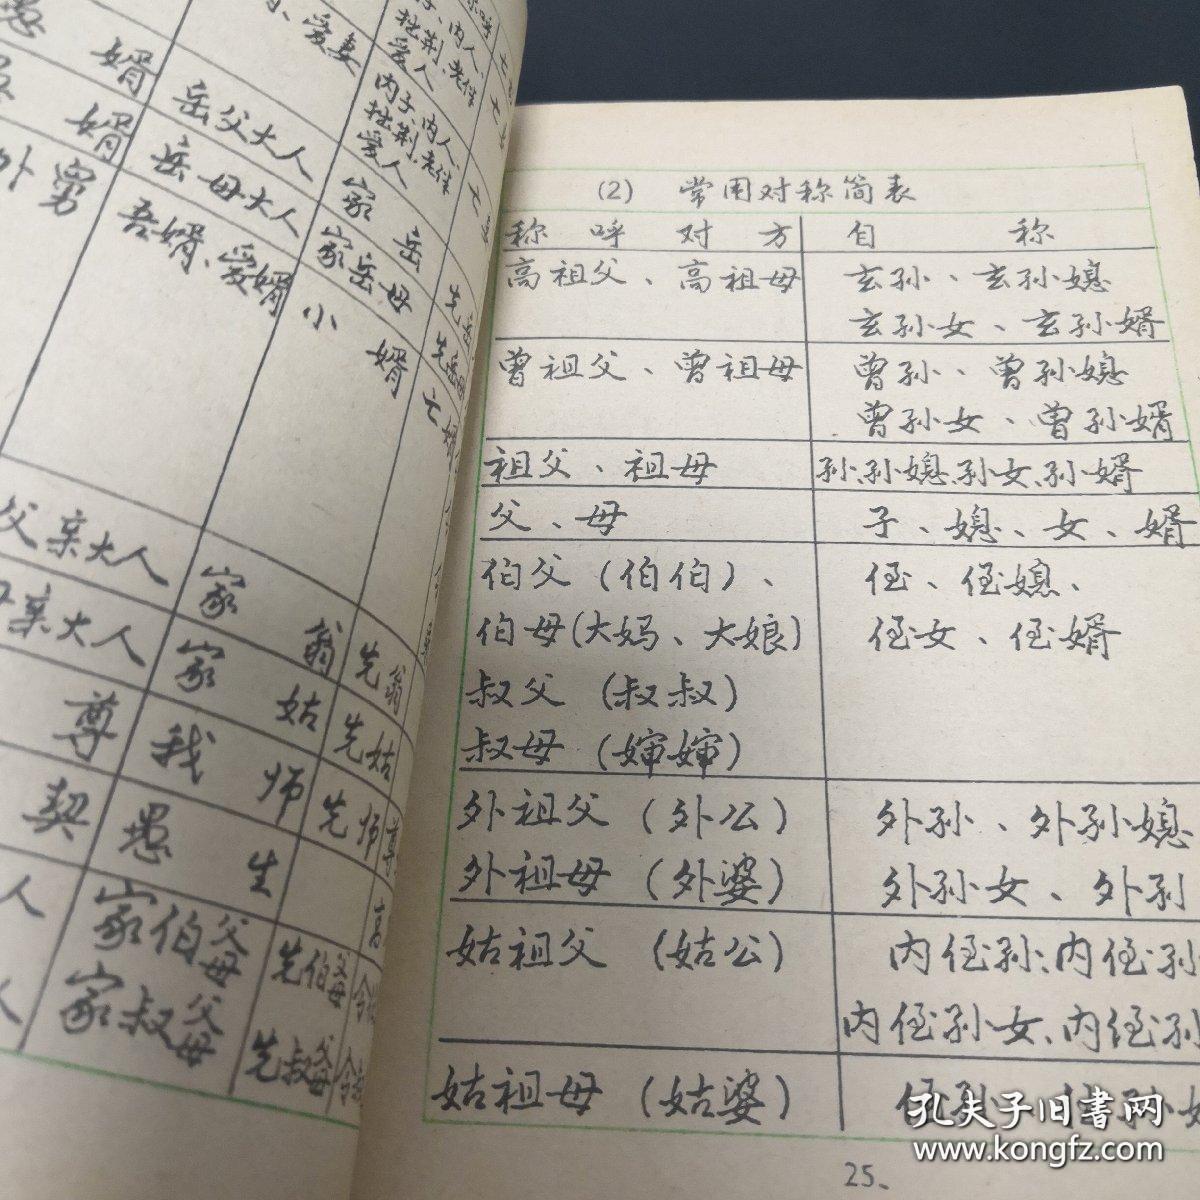 愚婿
岳父大人
内子、内人、
拙荆、老伴
爱人
婿
岳母大人
家岳
外男
吾婿、爱婿
家岳母
小婿
父亲大人
家翁
先翁
母亲大人
家姑
先姑
尊
我师
先师
契
愚生
家伯父母
先伯父母
家叔父母
先叔父母
(2) 常用对称简表
称呼对方 自称
高祖父、高祖母 玄孙、玄孙媳
玄孙女、玄孙婿
曾祖父、曾祖母 曾孙、曾孙媳
曾孙女、曾孙婿
祖父、祖母 孙、孙媳、孙女、孙婿
父、母 子、媳、女、婿
伯父(伯伯)、 侄、侄媳、
伯母(大妈、大娘) 侄女、侄婿
叔父(叔叔)
叔母(婶婶)
外祖父(外公) 外孙、外孙媳
外祖母(外婆) 外孙女、外孙
姑祖父(姑公) 内侄孙、内侄孙
内侄孙女、内侄孙
姑祖母(姑婆)
25、
孔夫子旧书网
www.kongfz.com